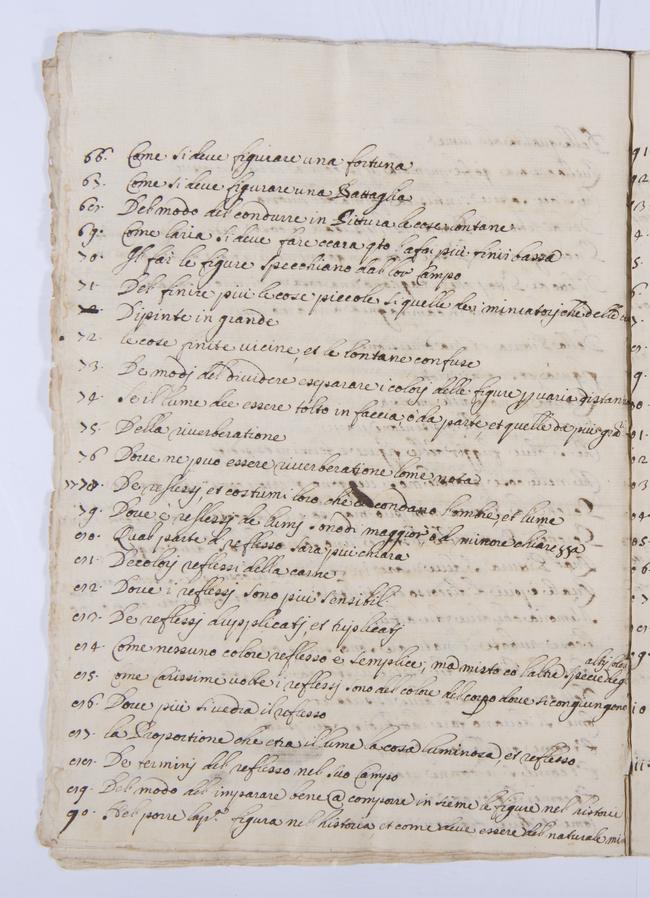 66. Come si deve figurare una fortuna
67. Come si deve figurare una Battaglia
68. Del modo del condurre in Pittura le cose lontane
69. Come laria si deve fare ccara qto la fai più finir bassa
70. fai le figure spicchiano dal lor Campo
71. Del finire più le cose piccole si quelle de miniatorj che delle
Dipinte in grande
72. le cose finite vicine, et le lontane confuse
73. De modj del dividere e separare i colorj delle figure varia distan
74. Se il lume dee essere tolto in faccia, ò da parte, et quelle da più grã
75. Della riverberatione
76 Dove ne puo essere riverberatione come nota
77 78. De reflessj et costumi loro che condano lombre, et lume
79. Dove i reflessj de lumj sono di maggior, ò di minore chiarezza
80. Qual parte del reflesso sara piu chiara
81. De colorj reflessi della carne
82. Dove i reflessj sono più sensibili
83. De reflessj dupplicatj, et triplicatj
84. Come nessuno colore reflesso è semplice, ma misto co laltre specie deg
altrj colorj
85. ome rarissime volte i reflessj sono del colore del corpo dove si congiungono
86. Dove più si vedra il reflesso
87. la Proportione che et ra il lume la cosa luminosa, et reflesso
88. De terminj del reflesso nel suo Campo
89. Del modo del imparare bene @ comporre insieme le figure nel historie
90. Del porre la pª. figura nel historia et come deve essere del naturale